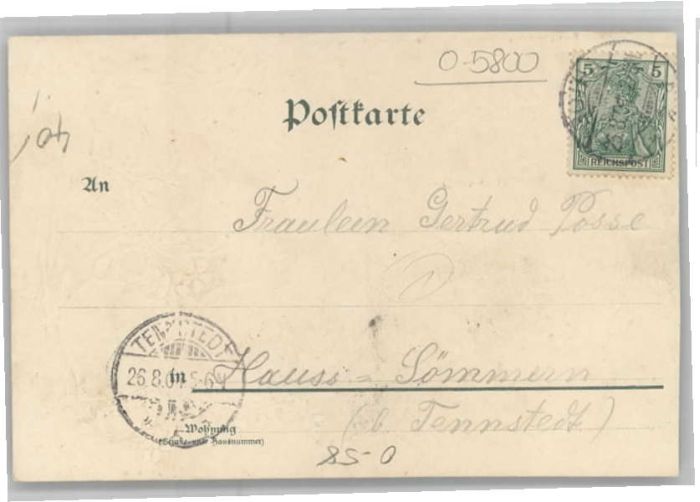 0-5800
5 5
REICHSPOST
Postkarte
40,-
An
Fräulein Gertrud Posse
TENNSTEDT
26.8.0 5-6
in Hauss-Sömmern
(b. Tennstedt)
Wohnung
(Straße und Hausnummer)
85-0